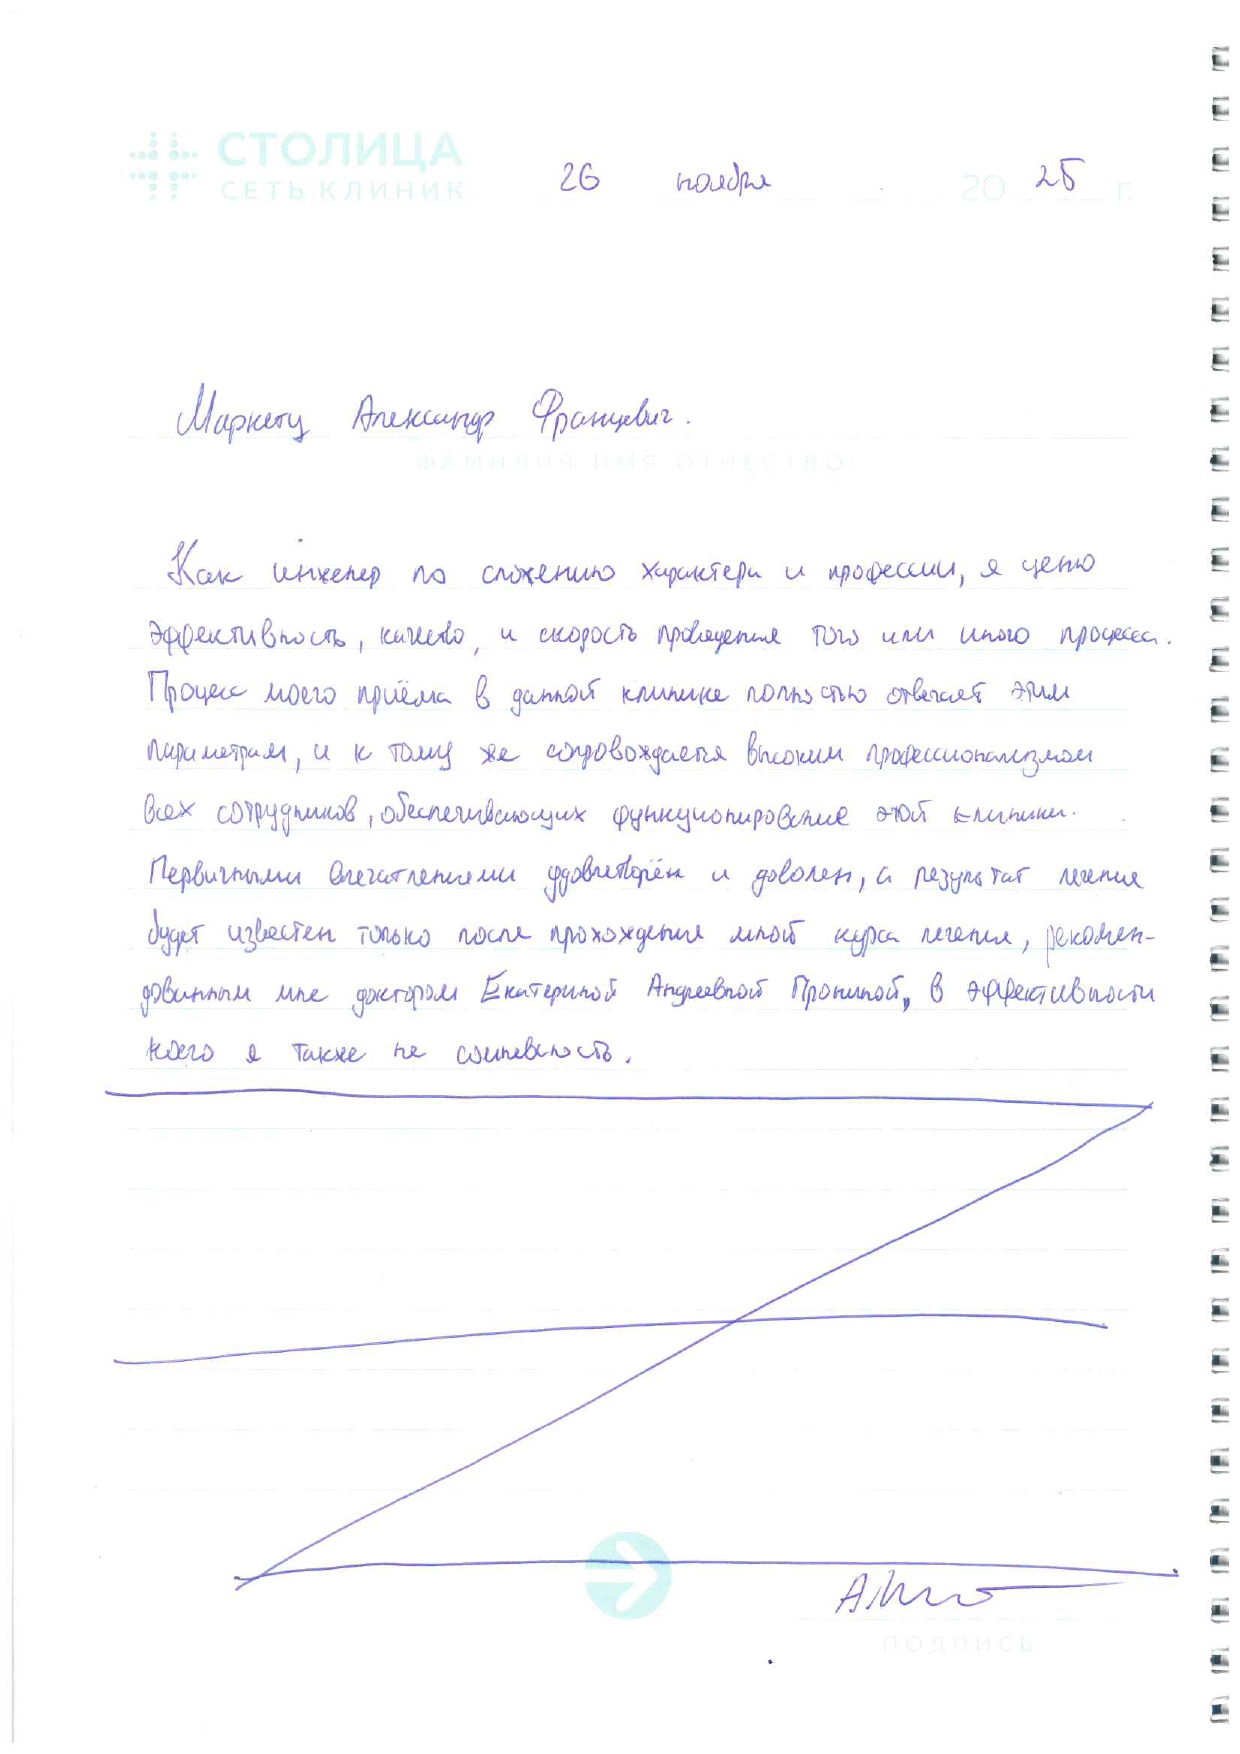 СТОЛИЦА
СЕТЬ КЛИНИК
26 ноября 2025 г.
Александр Францевич.
ФАМИЛИЯ ИМЯ ОТЧЕСТВО
Как инженер по сложению характера и профессии, я ценю
эффективность, качество, и скорость проведения того или иного процесса.
Процесс моего приёма в данной клинике полностью отвечает этим
параметрам, и к тому же сопровождается высоким профессионализмом
всех сотрудников, обеспечивающих функционирование этой клиники.
Первичными впечатлениями удовлетворён и доволен, а результат лечения
будет известен только после прохождения мной курса лечения, рекомен-
дованным мне доктором Екатериной Андреевной Прониной, в эффективности
коего я также не сомневаюсь.
ПОДПИСЬ